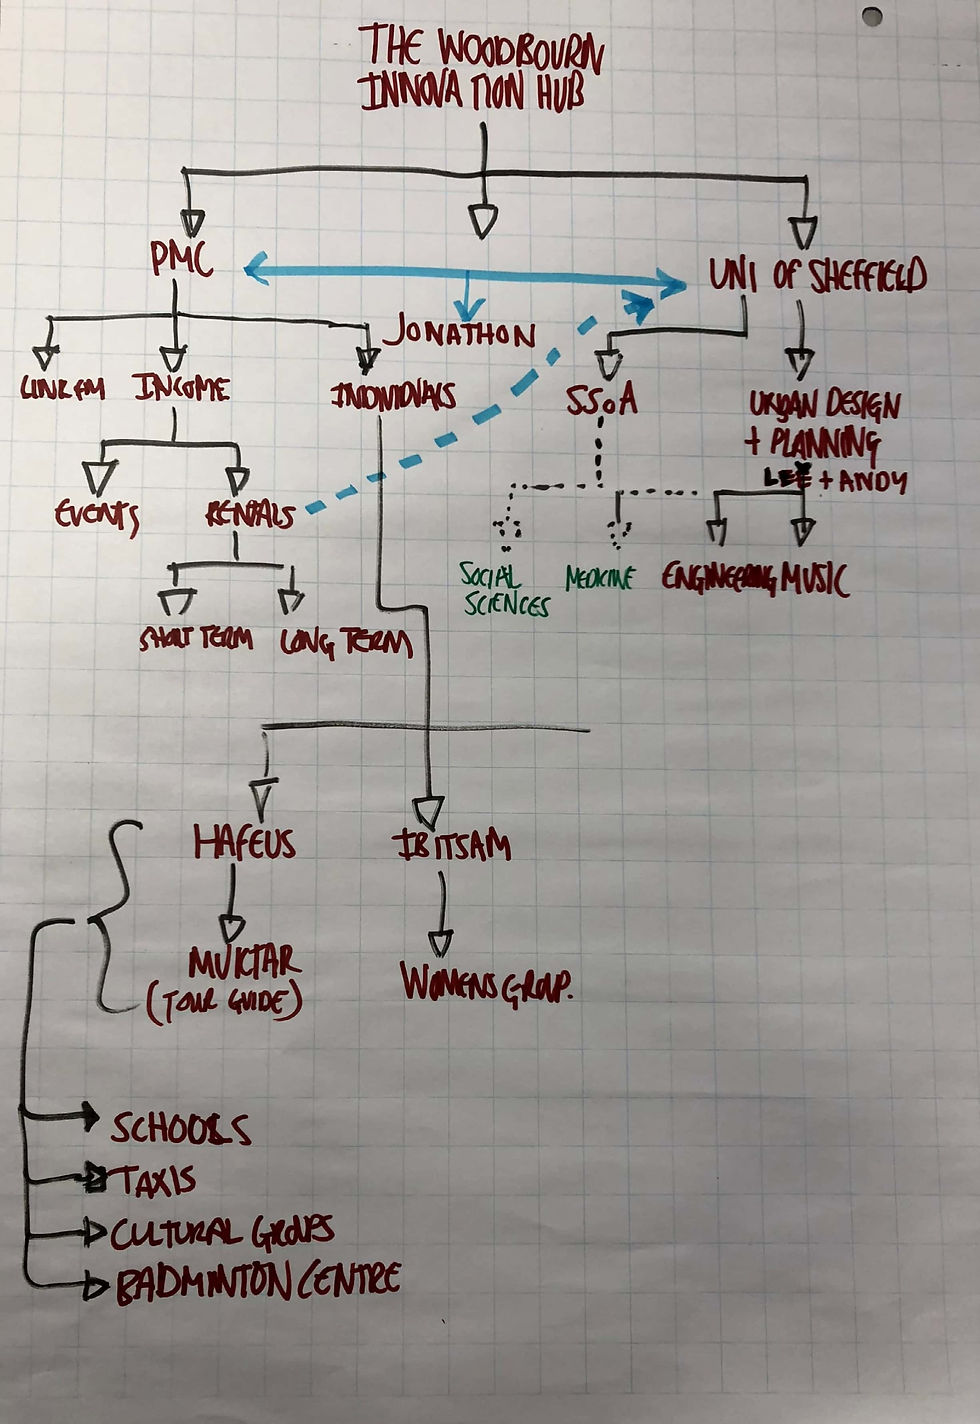 THE WOODBOURN
INNOVATION HUB
PMC
UNI OF SHEFFIELD
JONATHON
LINK FM
INCOME
INDIVIDUALS
SSoA
URBAN DESIGN
+ PLANNING
LEE + ANDY
EVENTS
RENTALS
SOCIAL
SCIENCES
MEDICINE
ENGINEERING
MUSIC
SHORT TERM
LONG TERM
HAFEUS
IBITSAM
MUKTAR
(TOUR GUIDE)
WOMENS GROUP.
SCHOOLS
TAXIS
CULTURAL GROUPS
BADMINTON CENTRE